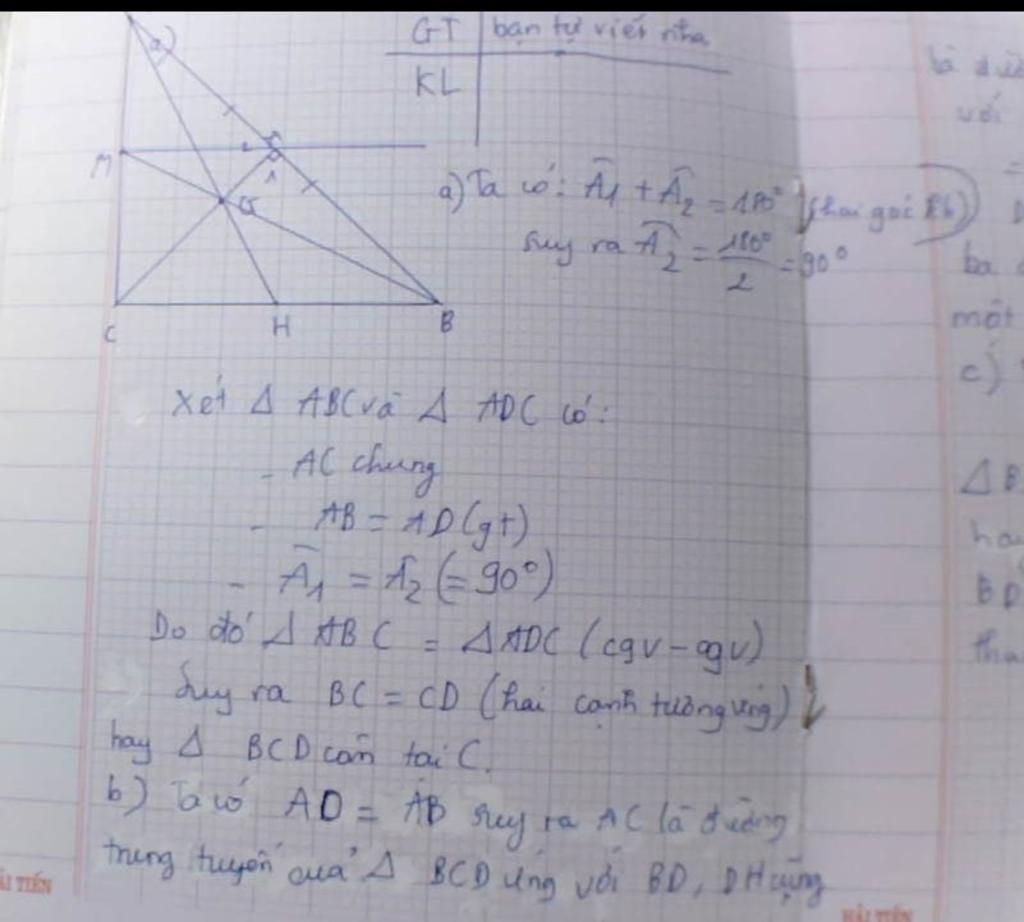 GT bạn tự viết nha
KL
D
M
2
1
G
C H B
a) Ta có: Â1 + Â2 = 180° (hai góc kb)
suy ra Â2 = 180°/2 = 90°
Xét Δ ABC và Δ ADC có:
- AC chung
- AB = AD (gt)
- Â1 = Â2 (= 90°)
Do đó Δ ABC = Δ ADC (cgv - cgv)
Suy ra BC = CD (hai cạnh tương ứng)
hay Δ BCD cân tại C.
b) Ta có AD = AB suy ra AC là đường
trung tuyến của Δ BCD ứng với BD, DH cũng
với
=
ba
một
c)
Δ B
BD
HẢI TIẾN